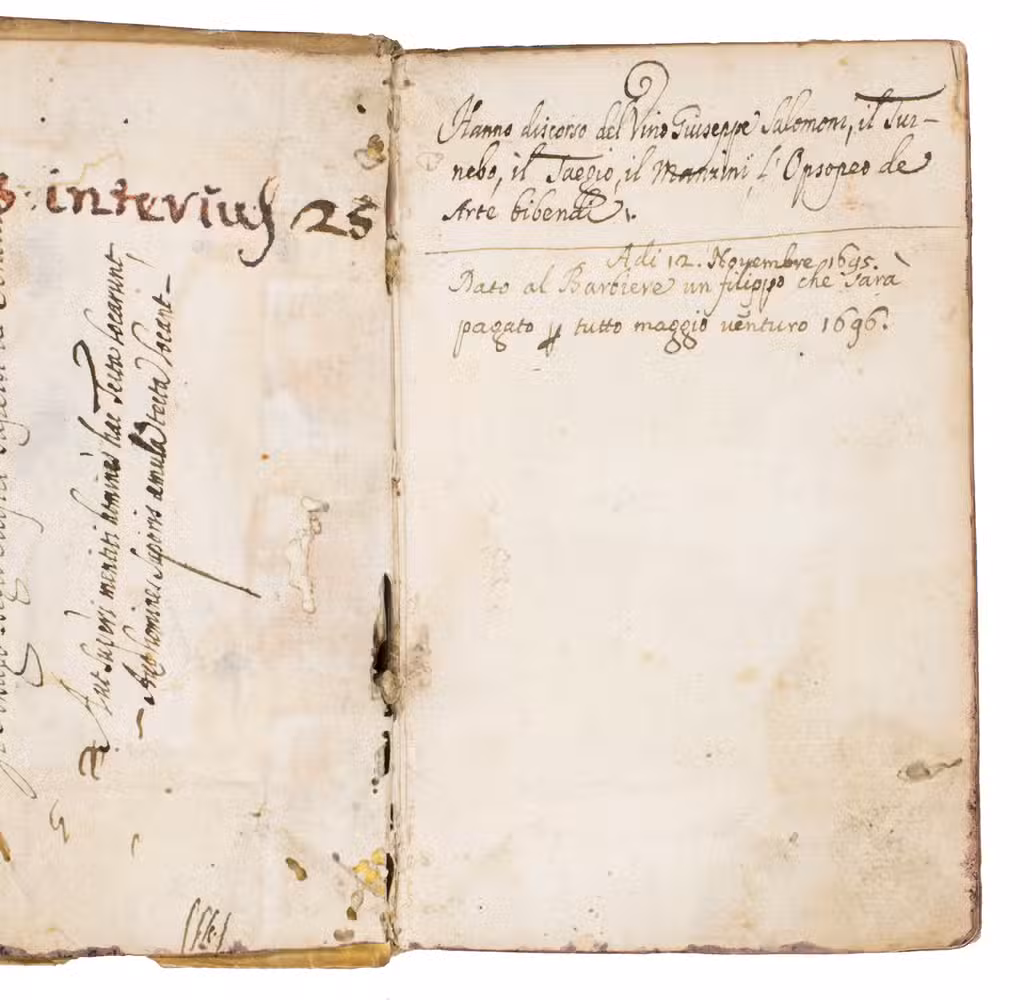 interiuſ 25
Aut Superi mentiti homines hac Tecta locarunt
Aut homines Superis aemula tecta locant
Hanno discorso del Vino Giuseppe Salomoni, il Tur-
nebo, il Taegio, il Manzini, l'Opsopeo de
Arte bibendi.
Adi 12. Novembre 1695.
Dato al Barbiere un filippo che sarà
pagato ꝑ tutto maggio venturo 1696.